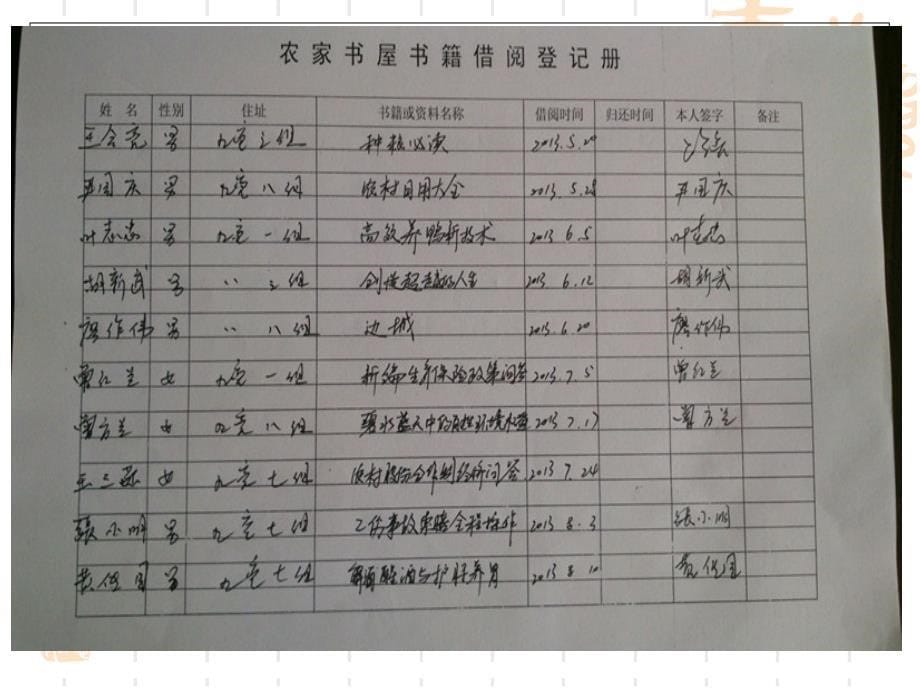 农家书屋书籍借阅登记册
姓名 性别 住址 书籍或资料名称 借阅时间 归还时间 本人签字 备注
王会亮 男 九亮三组 种植必读 2013.5.20
王国庆 男 九亮八组 农村日用大全 2013.5.28 王国庆
叶志忠 男 九亮一组 高效养鸭新技术 2013 6.5 叶志忠
胡新武 男 〃 三组 创造超越的人生 2013. 6.12 胡新武
廖作伟 男 〃 八组 边城 2013.6.20 廖作伟
曾红兰 女 九亮一组 新编生养保险政策问答 2013.7.5 曾红兰
曾方兰 女 九亮八组 碧水蓝天中的 2013 7.17 曾方兰
王三 女 九亮七组 农村股份合作制经济问答 2013 7.24
张小明 男 九亮七组 工伤事故索赔全程操作 2013 8.3 张小明
黄保国 男 九亮七组 解酒醒酒与护肝养胃 2013 8 10 黄保国